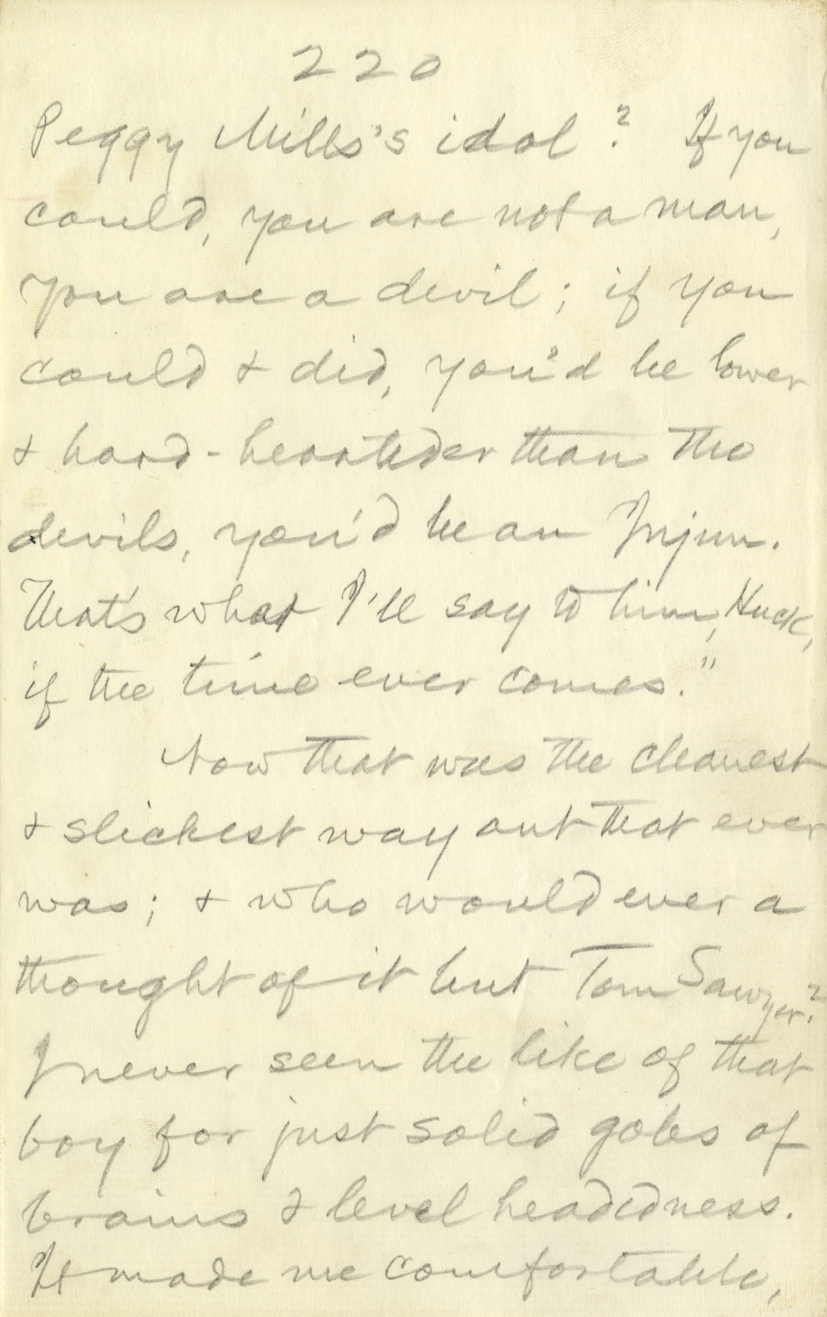 220
Peggy Mills's idol? If you
could, you are not a man,
you are a devil; if you
could & did, you'd be lower
& hard-hearteder than the
devils, you'd be an Injun.
That's what I'll say to him, Huck,
if the time ever comes."
Now that was the cleanest
& slickest way out that ever
was; & who would ever a
thought of it but Tom Sawyer?
I never seen the like of that
boy for just solid gobs of
brains & level headedness.
It made me comfortable,